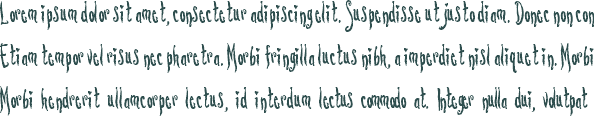 Lorem ipsum dolor sit amet, consectetur adipiscing elit. Suspendisse ut justo diam. Donec non con
Etiam tempor vel risus nec pharetra. Morbi fringilla luctus nibh, a imperdiet nisl aliquet in. Morbi
Morbi hendrerit ullamcorper lectus, id interdum lectus commodo at. Integer nulla dui, volutpat